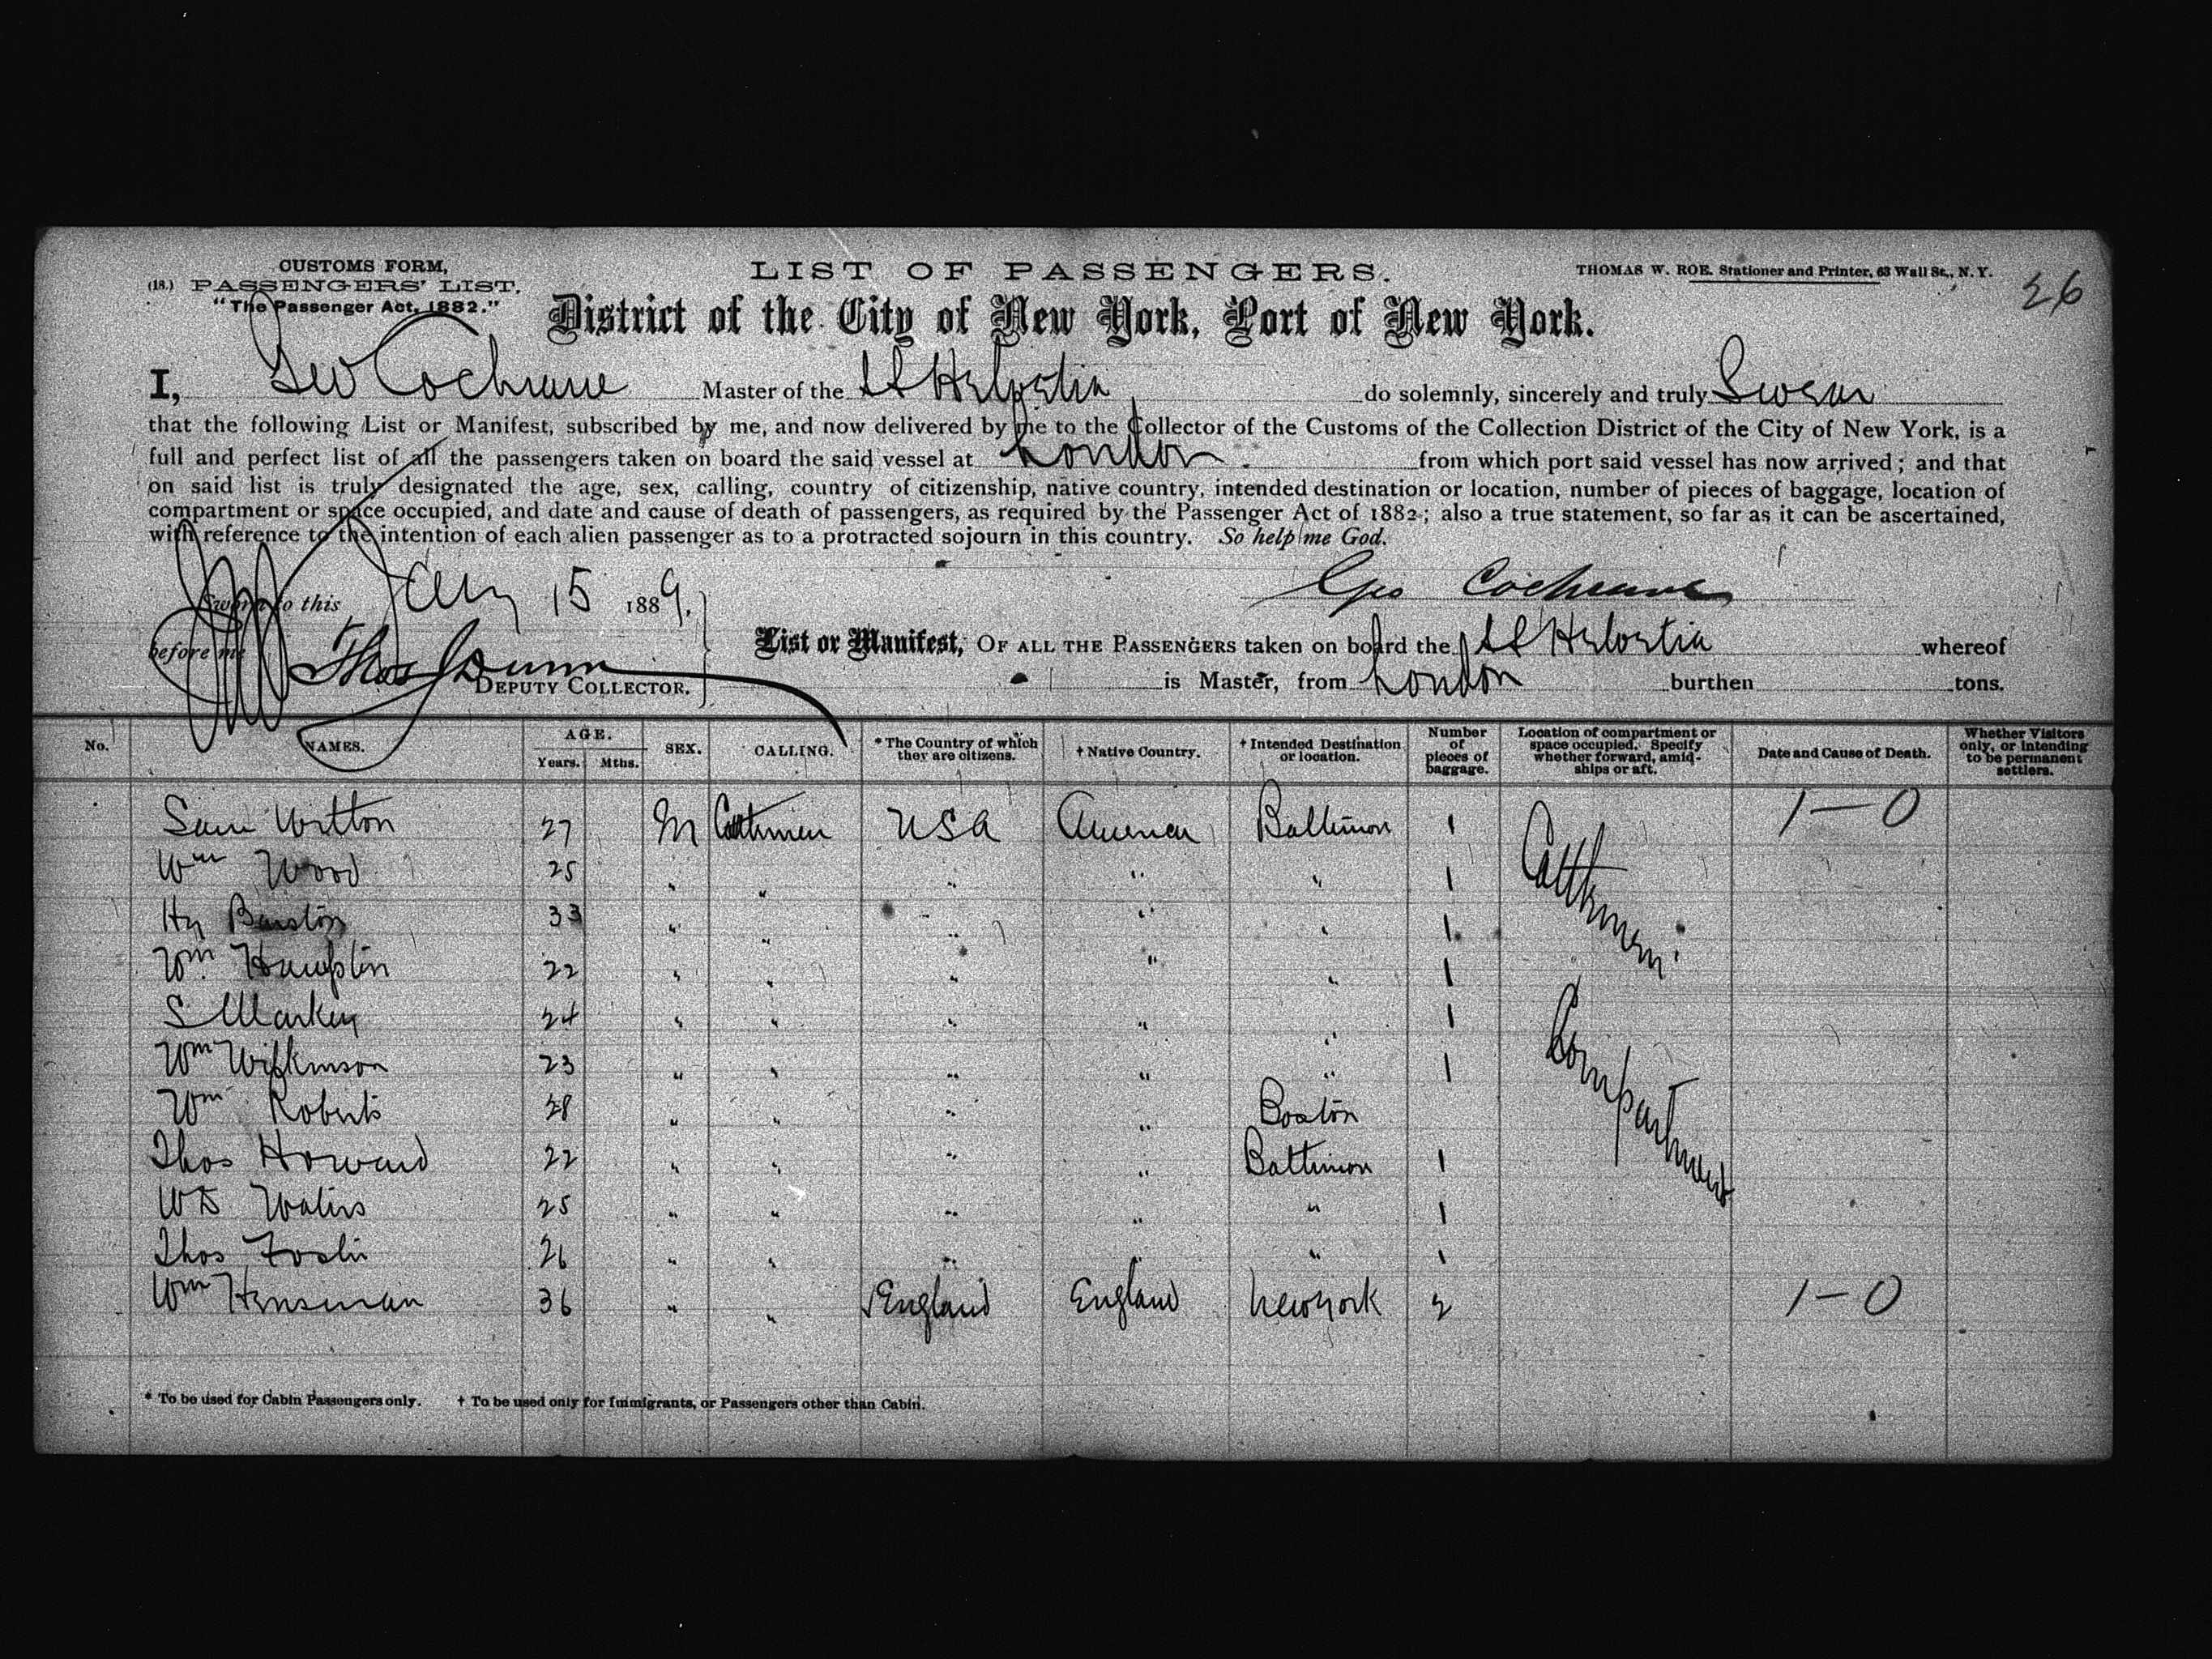 CUSTOMS FORM,
(18.) PASSENGERS' LIST.
"The Passenger Act, 1882."
LIST OF PASSENGERS.
THOMAS W. ROE. Stationer and Printer, 63 Wall St., N.Y.
26
District of the City of New York, Port of New York.
I, Geo Cochrane Master of the SS Helvetia do solemnly, sincerely and truly Swear
that the following List or Manifest, subscribed by me, and now delivered by me to the Collector of the Customs of the Collection District of the City of New York, is a
full and perfect list of all the passengers taken on board the said vessel at London from which port said vessel has now arrived; and that
on said list is truly designated the age, sex, calling, country of citizenship, native country, intended destination or location, number of pieces of baggage, location of
compartment or space occupied, and date and cause of death of passengers, as required by the Passenger Act of 1882; also a true statement, so far as it can be ascertained,
with reference to the intention of each alien passenger as to a protracted sojourn in this country. So help me God.
Sworn to this Jany 15 1889.
Geo Cochrane
before me Thos Dunn
DEPUTY COLLECTOR.
List or Manifest, OF ALL THE PASSENGERS taken on board the SS Helvetia whereof
is Master, from London burthen tons.
No. NAMES. AGE. Years. Mths. SEX. CALLING. * The Country of which they are citizens. † Native Country. † Intended Destination or location. Number of pieces of baggage. Location of compartment or space occupied. Specify whether forward, amidships or aft. Date and Cause of Death. Whether Visitors only, or intending to be permanent settlers.
Sam Witton 27 M Cattlemen USA America Baltimore 1 1-0
Wm Wood 25 " " " " " 1
Hy 33 " " " " " 1
Wm 22 " " " " " 1
S Markey 24 " " " " " 1
Wm Wilkinson 23 " " " " " 1
Wm Roberts 28 " " " " Boston
Thos Howard 22 " " " " Baltimore 1
25 " " " " " 1
Thos Foster 26 " " " " " 1
Wm Hensman 36 " " England England New York 2 1-0
Cattlemen
Compartment
* To be used for Cabin Passengers only. † To be used only for Immigrants, or Passengers other than Cabin.